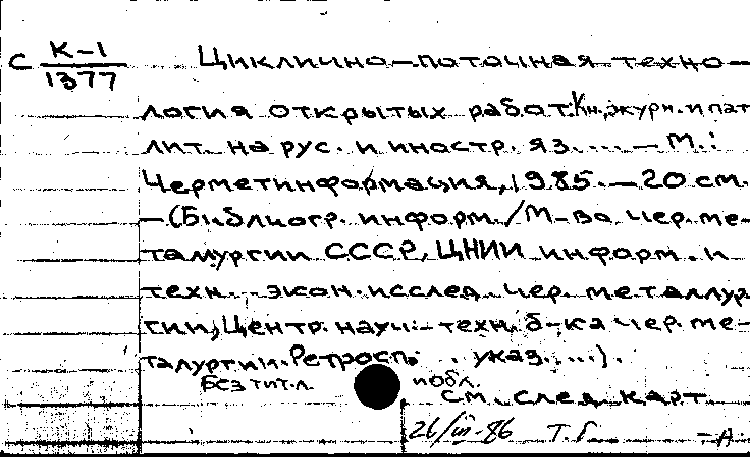 С К-1
1377
Циклично-поточная техно-
логия открытых работ: Кн., журн. и пат.
лит. на рус. и иностр. яз. ... — М.:
Черметинформация, 1985. — 20 см.
— (Библиогр. информ. / М-во чер. ме-
таллургии СССР, ЦНИИ информ. и
техн.-экон. исслед. чер. металлур
гии, Центр. науч.-техн. б-ка чер. ме-
талургии. Ретросп. указ. ...).
Без тит. л. пообл.
См. след. карт.
26/III-86 Т.Г.